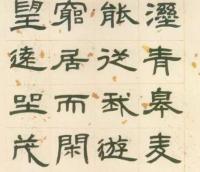 溼青皋麦
能從我遊
窮居而閑
望遠坐茂